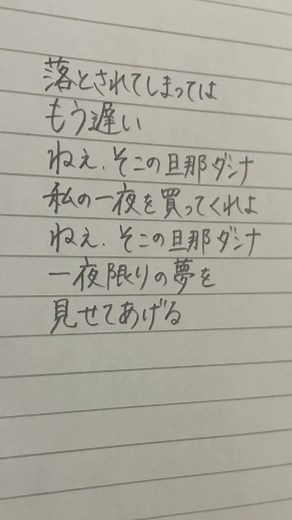 落とされてしまっては
もう遅い
ねぇ、そこの旦那ダンナ
私の一夜を買ってくれよ
ねぇ、そこの旦那ダンナ
一夜限りの夢を
見せてあげる